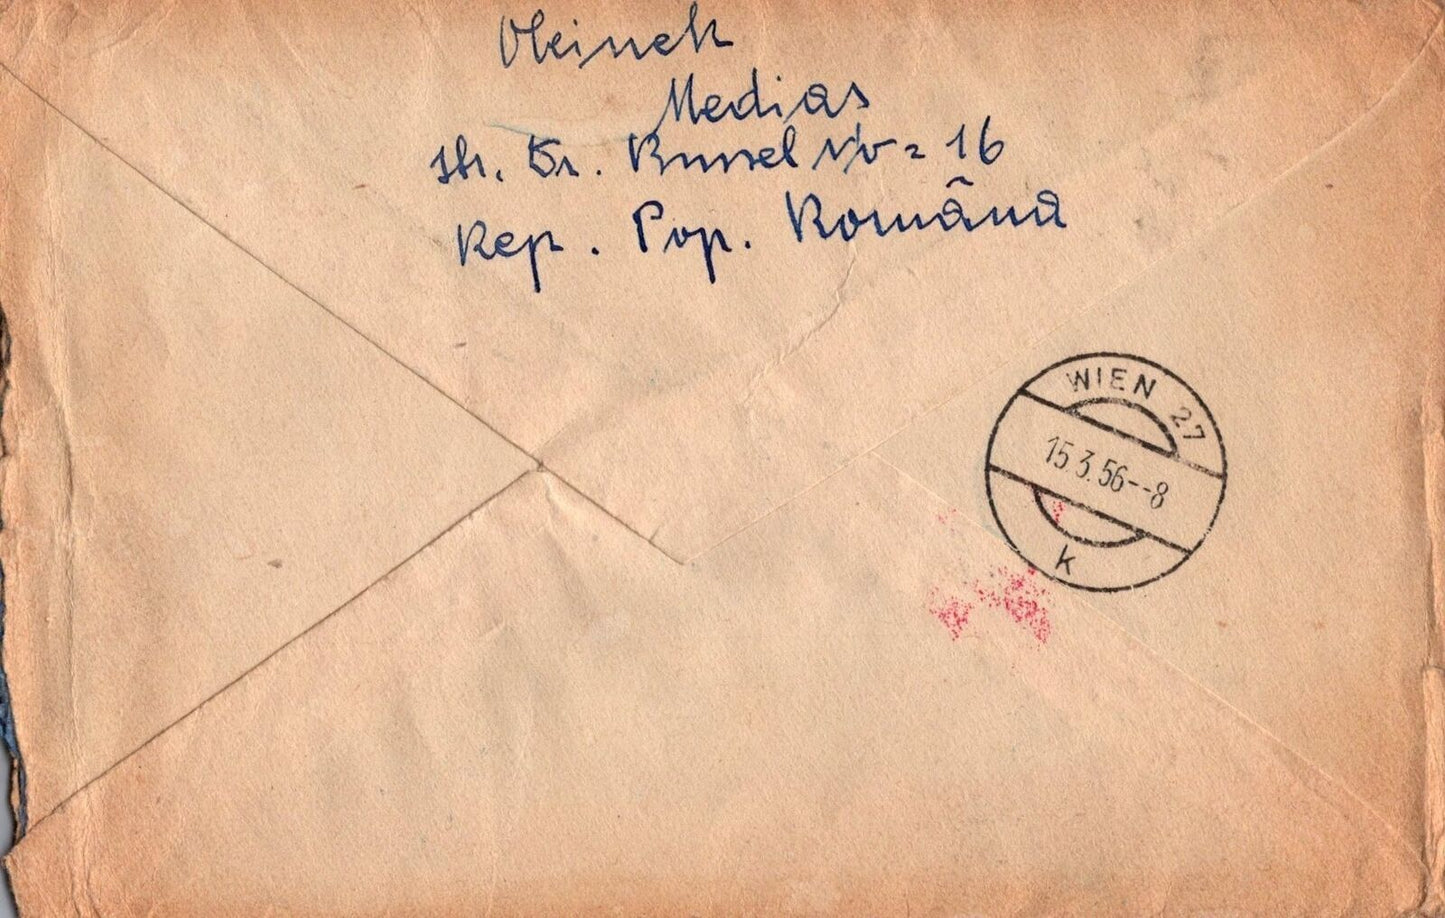 Oleinek
Medias
str. Dr. Russel No = 16
Rep. Pop. Română
WIEN 27
15.3.56--8
k